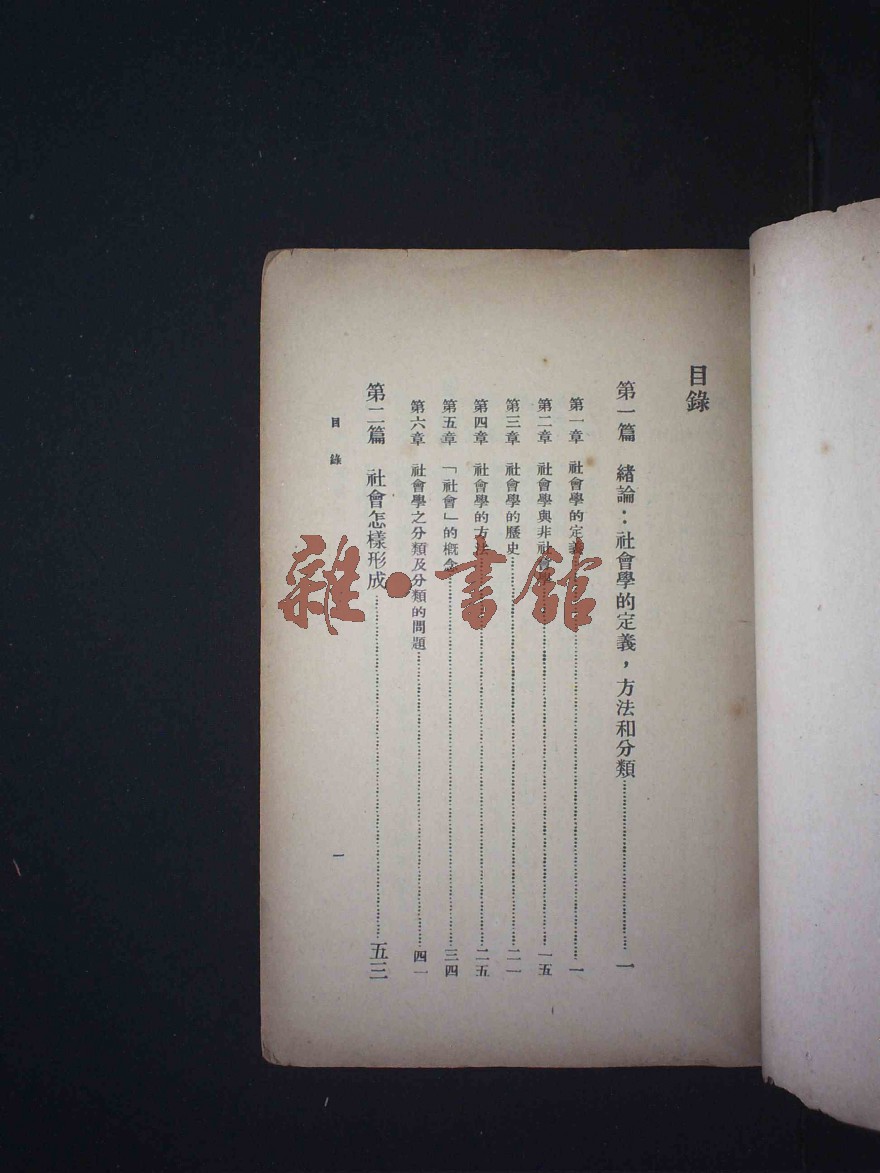 目錄
第一篇 緒論：社會學的定義，方法和分類……一
第一章 社會學的定義……一
第二章 社會學與非社會學……一五
第三章 社會學的歷史……二一
第四章 社會學的方法……二五
第五章 「社會」的概念……三四
第六章 社會學之分類及分類的問題……四一
第二篇 社會怎樣形成……五三
目錄
一
雜·書館